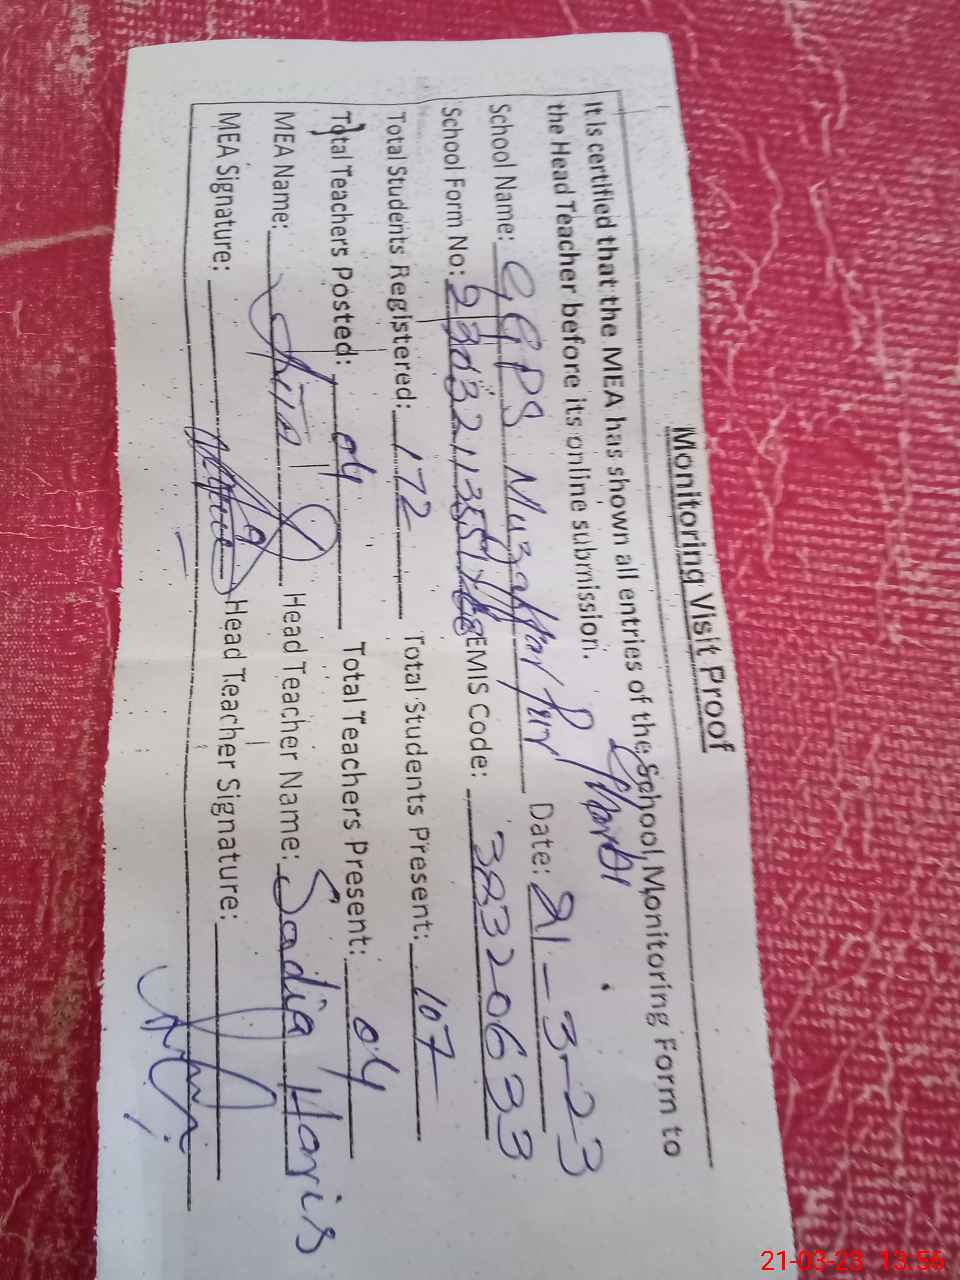 Monitoring Visit Proof
It is certified that the MEA has shown all entries of the School Monitoring Form to
the Head Teacher before its online submission.
School Name: GGPS Muzaffar pur Date: 21-3-23
School Form No: EMIS Code: 38320633
Total Students Registered: 172 Total Students Present: 107
Total Teachers Posted: 04 Total Teachers Present: 04
MEA Name: Head Teacher Name: Sadia Haris
MEA Signature: Head Teacher Signature:
21-03-23 13:56